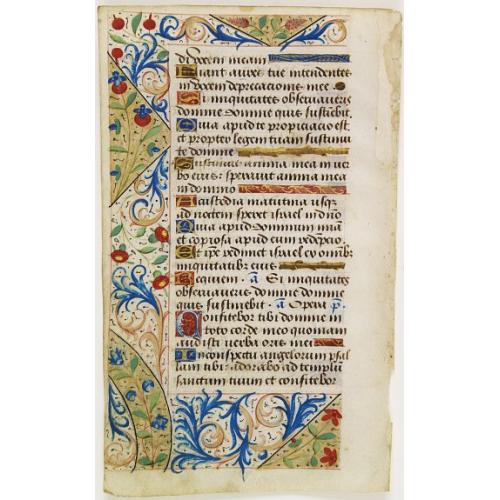 di vocem meam
Fiant aures tue intendentes
in vocem deprecationis mee
Si iniquitates observaveris
domine domine quis sustinebit.
Quia apud te propiciatio est
et propter legem tuam sustinui
te domine
Sustinuit anima mea in ver
bo eius: speravit anima mea
in domino
A custodia matutina usq
ad noctem speret israel in dno
Quia apud dominum mia
et copiosa apud eum redepcio
Et ipe redimet israel ex omnibz
iniquitatibz eius
Requiem. a Si iniquitates
observaveris domine domine
quis sustinebit. a Opera p
Confitebor tibi domine in
toto corde meo quoniam
audisti verba oris mei
In conspectu angelorum psal
lam tibi: adorabo ad templum
sanctum tuum et confitebor